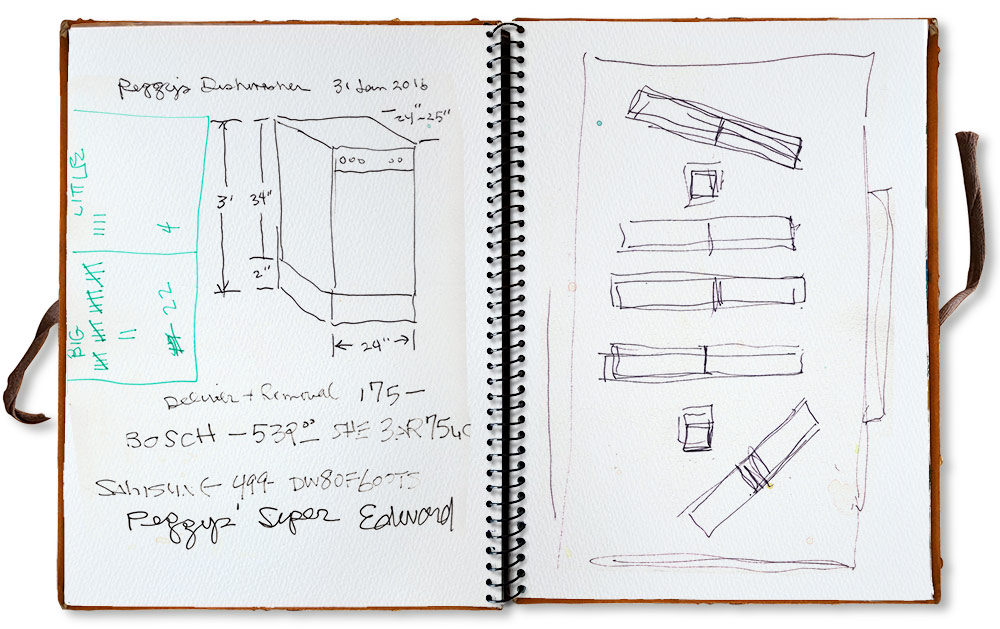 Peggy's Dishwasher 31 Jan 2016
24"~25"
3'
34"
2"
24"
LITTLE
IIII
4
BIG
22
Deliver + Removal 175—
BOSCH — 539⁰⁰ SHE
499-
Peggys' Super Edward